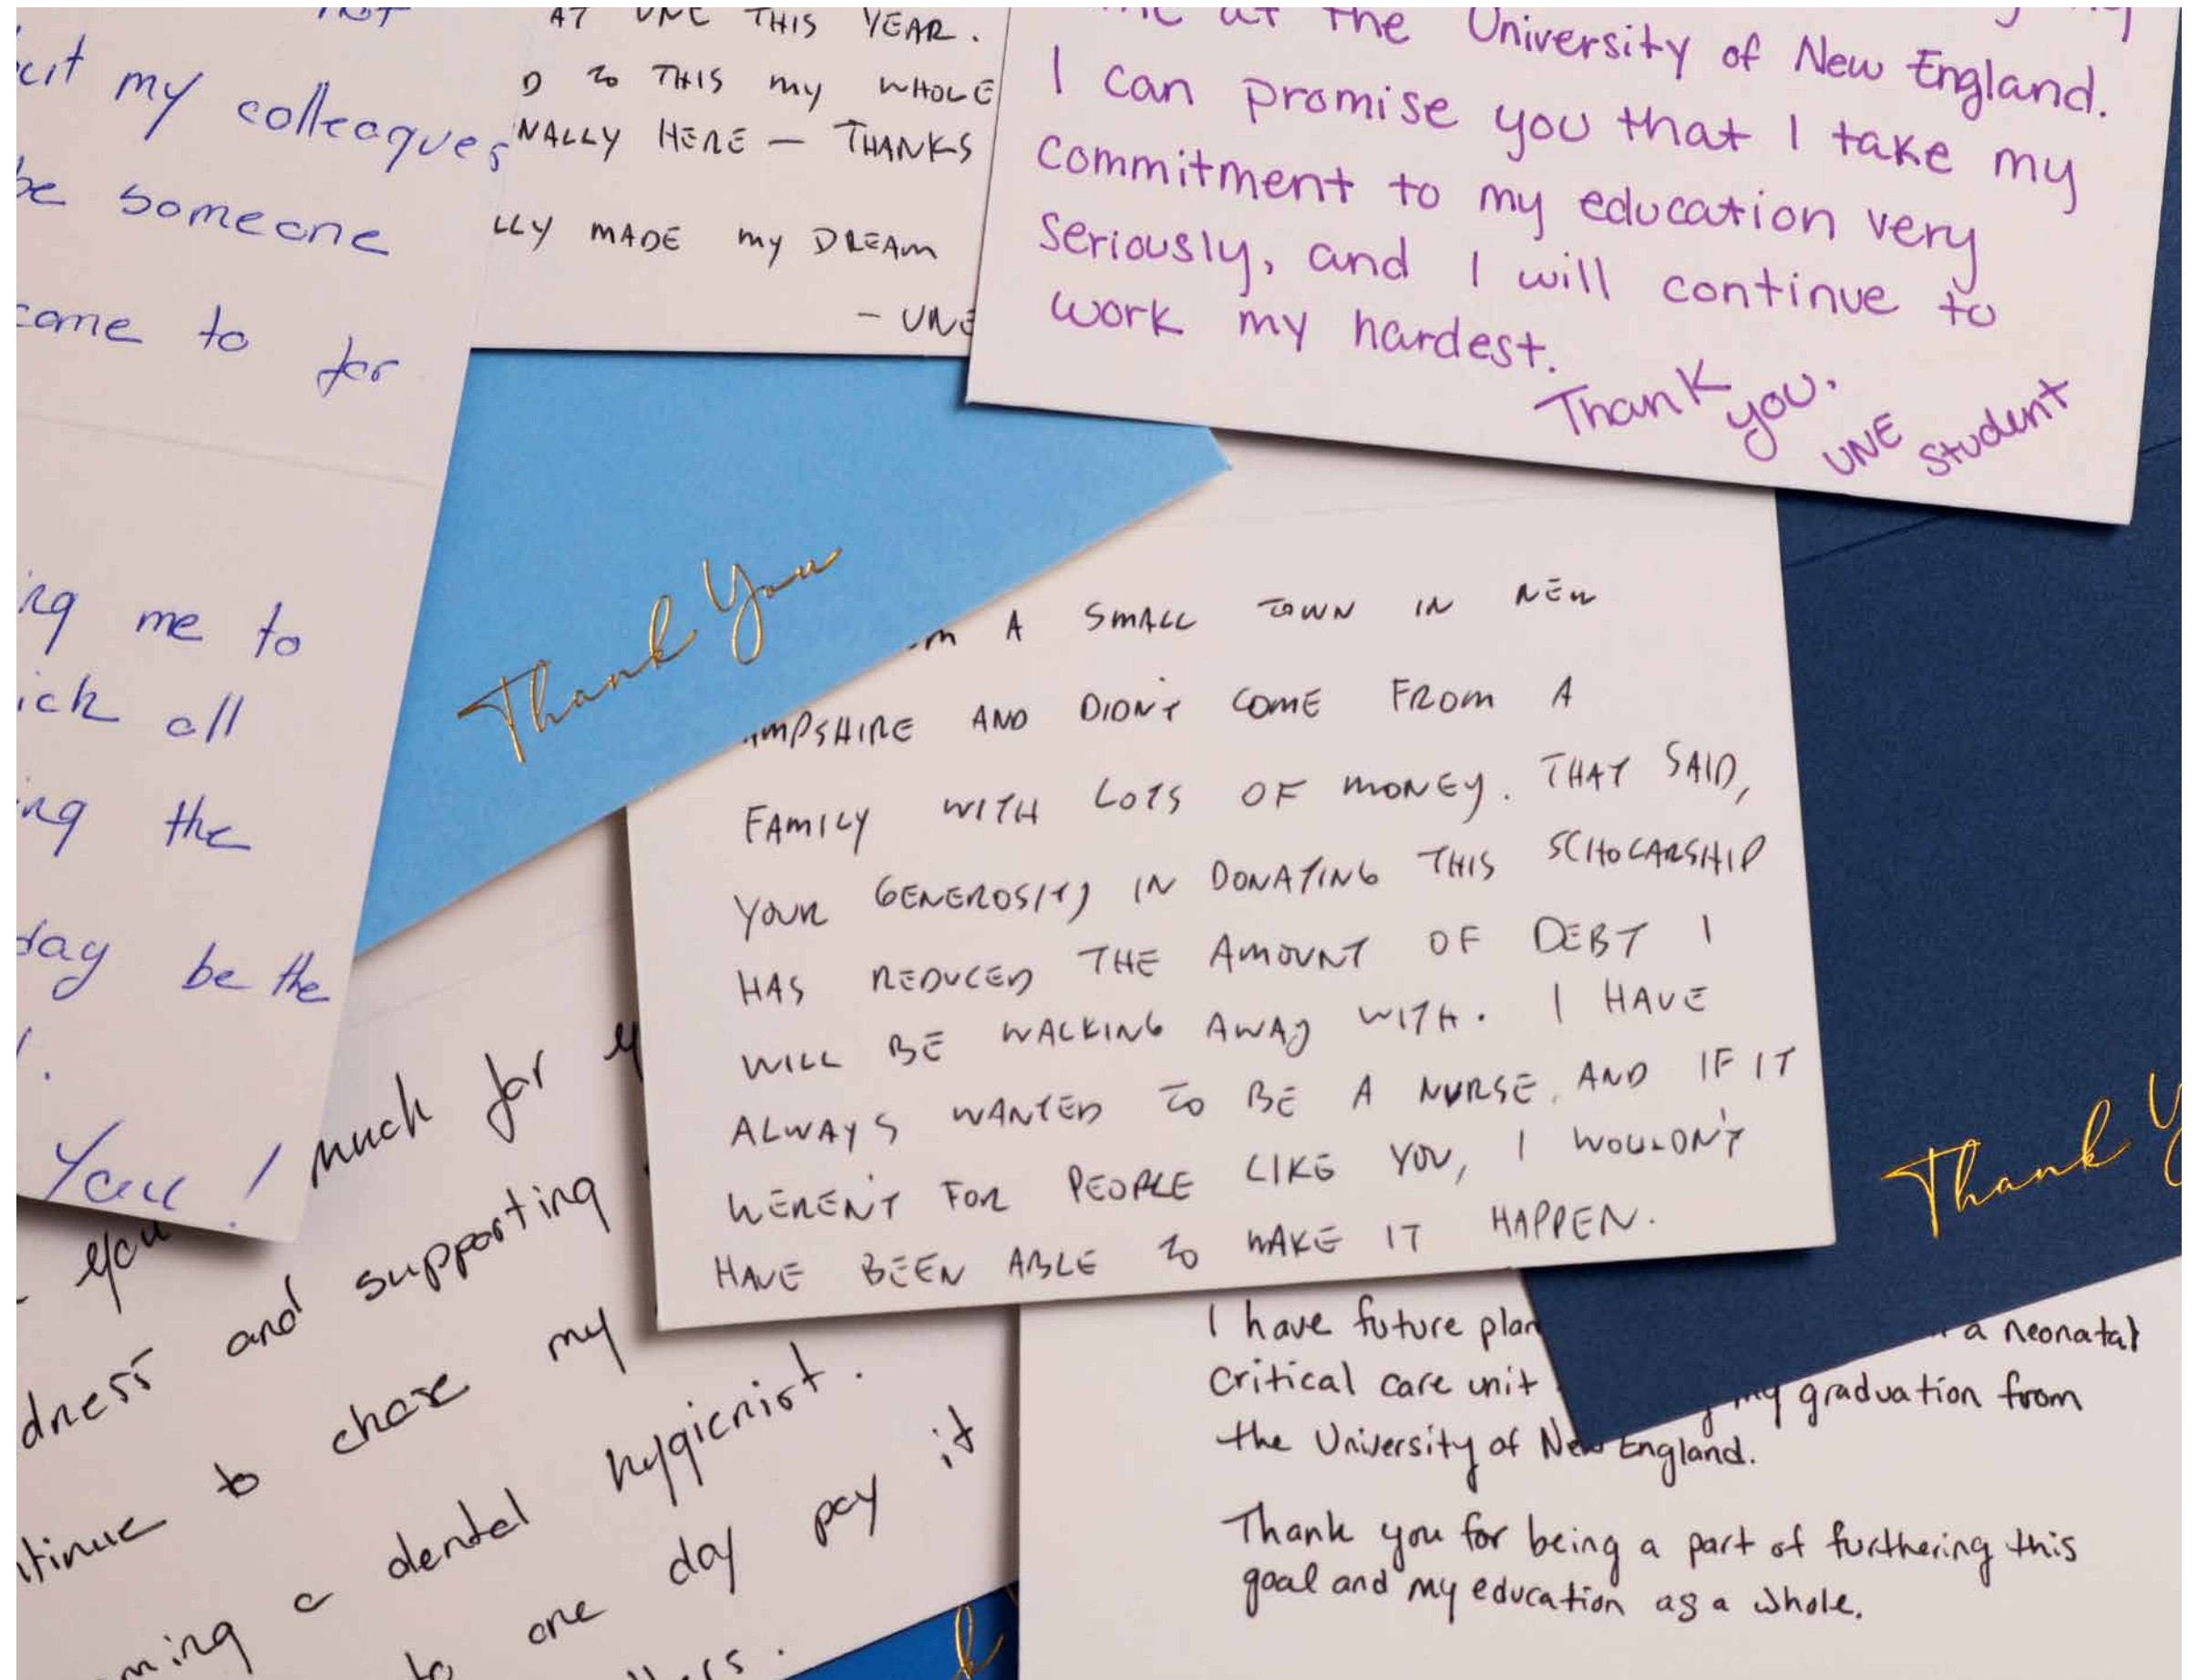 my colleagues
be someone
come to for
me to
all
the
day be the
You!
AT UNE THIS YEAR.
TO THIS MY WHOLE
HERE — THANKS
MADE MY DREAM
- UNE
at the University of New England.
I can promise you that I take my
commitment to my education very
seriously, and I will continue to
work my hardest.
Thank you.
UNE Student
Thank You
A SMALL TOWN IN NEW
AND DIDN'T COME FROM A
FAMILY WITH LOTS OF MONEY. THAT SAID,
YOUR GENEROSITY IN DONATING THIS SCHOLARSHIP
HAS REDUCED THE AMOUNT OF DEBT I
WILL BE WALKING AWAY WITH. I HAVE
ALWAYS WANTED TO BE A NURSE, AND IF IT
WEREN'T FOR PEOPLE LIKE YOU, I WOULDN'T
HAVE BEEN ABLE TO MAKE IT HAPPEN.
Thank Y
much for
you
and supporting
to chase my
a dental hygienist.
to one day pay it
I have future plan
a neonatal
critical care unit
my graduation from
the University of New England.
Thank you for being a part of furthering this
goal and my education as a whole.